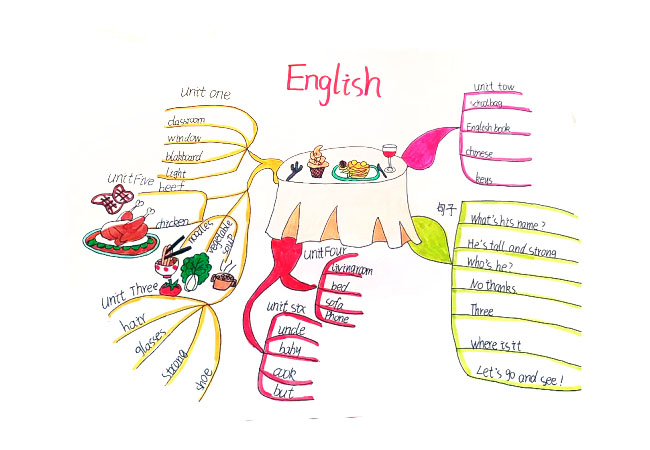 English
unit one
classroom
window
blakbard
light
unit Five
beef
chicken
noodles
vegetable
soup
unit Three
hair
glasses
strong
shoe
unit Four
livingroom
bed
sofa
Phone
unit six
uncle
baby
cook
but
unit tow
schoolbag
English book
chinese
keys
句子
What's his name?
He's tall and strong
Who's he?
No thanks
Three
where is it
Let's go and see!